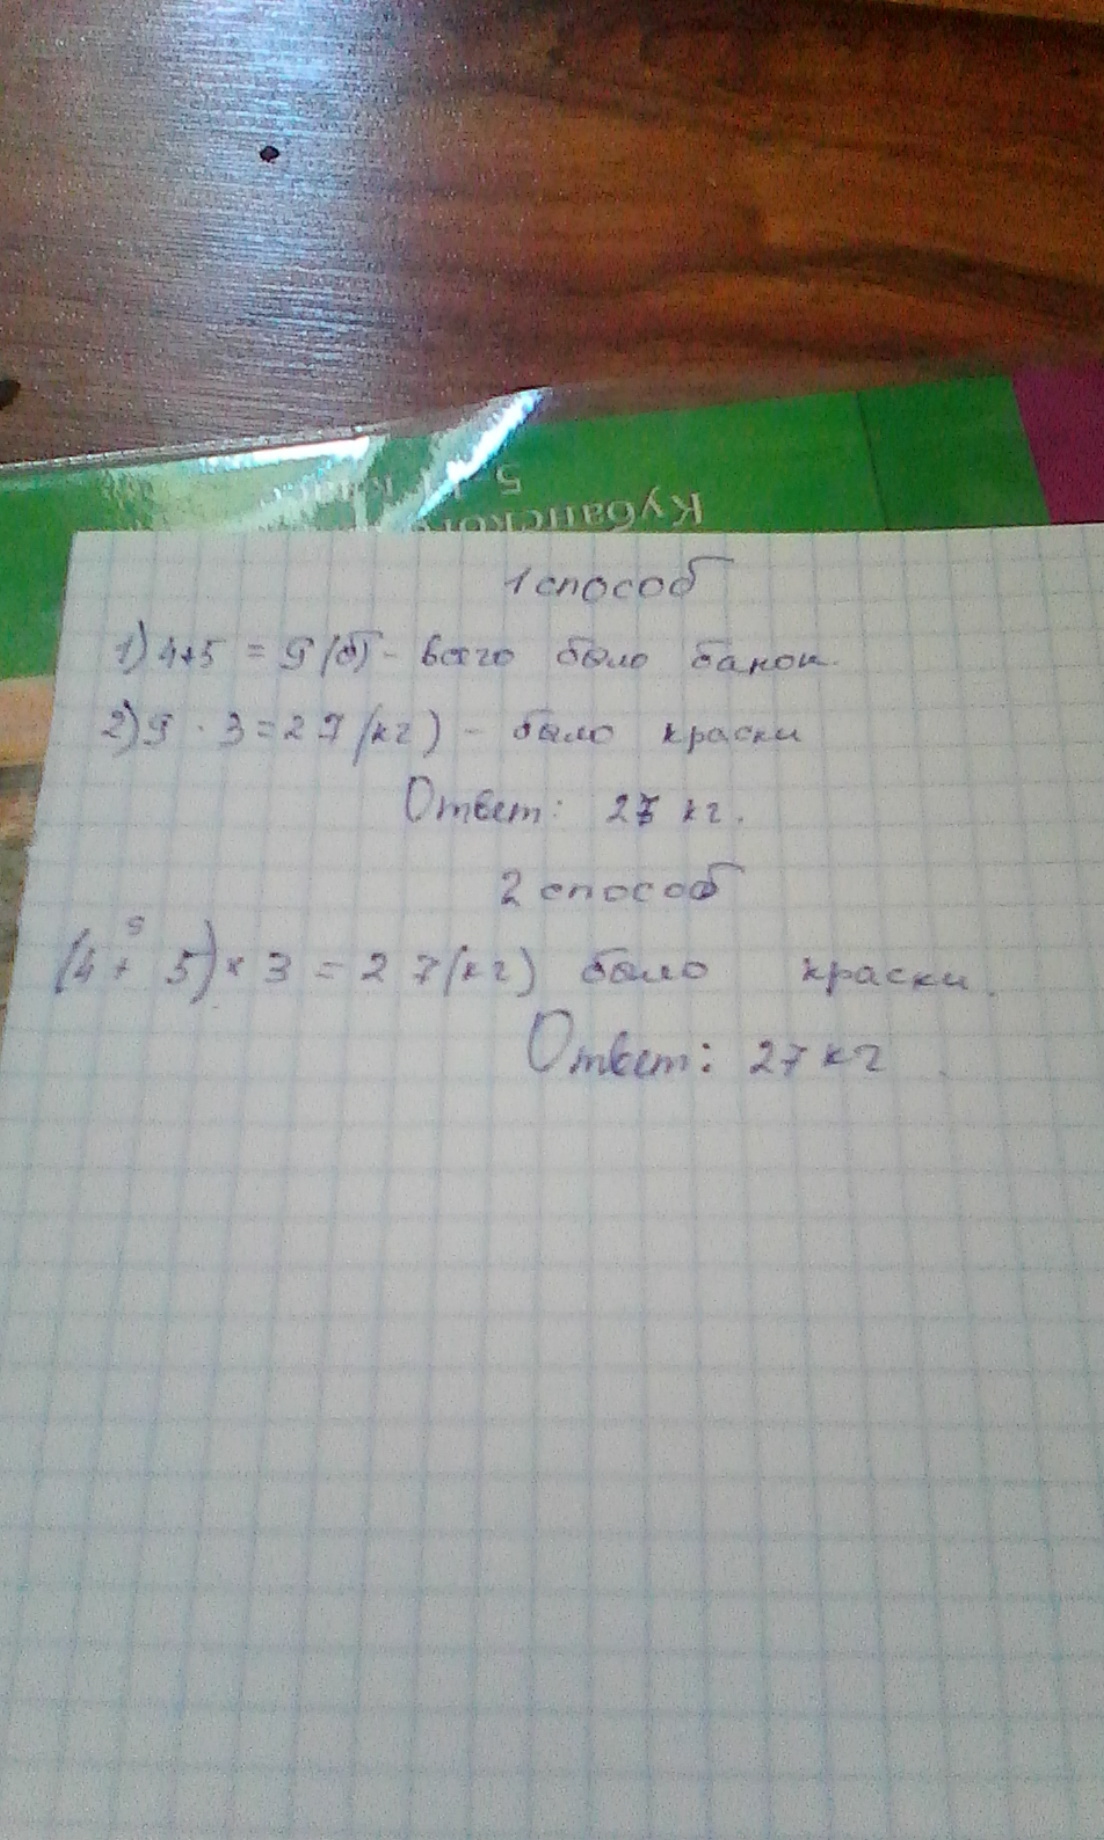 Кубанского
5
1 способ
1) 4+5 = 9 (б) - всего было банок.
2) 9 · 3 = 27 (кг) - было краски
Ответ: 27 кг.
2 способ
9
(4 + 5) × 3 = 27 (кг) было краски.
Ответ: 27 кг